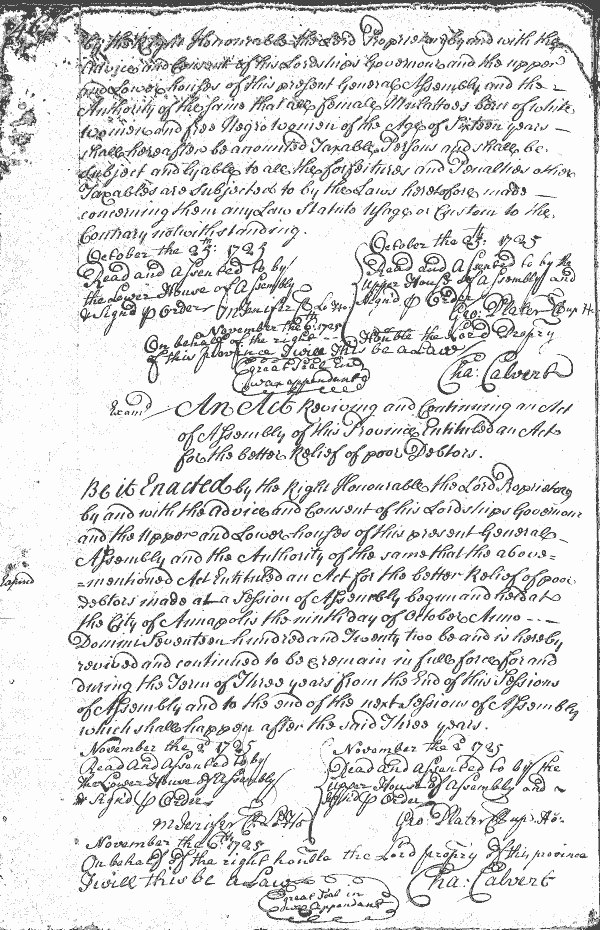 by the Right Honourable the Lord Proprietary by and with the
advice and Consent of his Lordships Governour and the upper
and Lower houses of this present General Assembly and the
Authority of the same that all female Mulattoes born of white
women and free Negro women of the Age of Sixteen years
shall hereafter be accounted Taxable Persons and shall be
Subject and lyable to all the forfeitures and Penalties other
Taxables are Subjected to by the Laws heretofore made
concerning them any Law Statute Usage or Custom to the
Contrary notwithstanding.
October the 25th: 1725
Read and assented to by
the Lower House of Assembly
& Signd p Order
M Jenifer Cl Lo Ho
October the 25th: 1725
Read and Assented to by the
Upper House of Assembly and
Signd p Order
Geo: Plater Cl up H
November the 6th 1725
On behalf of the right Honble the Lord Propry
of this province I will this be a Law
Great Seal in
wax appendant
Cha: Calvert
Examd
An Act Reviving and Continuing an Act
of Assembly of this Province Entituled an Act
for the better Relief of poor Debtors.
Be it Enacted by the Right Honourable the Lord Proprietary
by and with the advice and Consent of his Lordships Governour
and the Upper and Lower houses of this present General
Assembly and the Authority of the same that the above=
=mentioned Act Entituled an Act for the better Relief of poor
debtors made at a Session of Assembly begun and held at
the City of Annapolis the ninth day of October Anno
Domini Seventeen hundred and Twenty two be and is hereby
revived and continued to be & remain in full force for and
during the Term of Three years from the End of this Sessions
of Assembly and to the end of the next Sessions of Assembly
which shall happen after the said Three years.
November the 2d 1725
Read And Assented to by
the Lower House of Assembly
& Signd p Order
M Jenifer Cl Lo Ho
November the 2d 1725
Read and assented to by the
upper House of Assembly and
Signd p Order
Geo: Plater Cl up: Ho:
November the 6th 1725
On behalf of the right honble the Lord propry of this province
I will this be a Law
Great Seal in
wax Appendant
Cha: Calvert